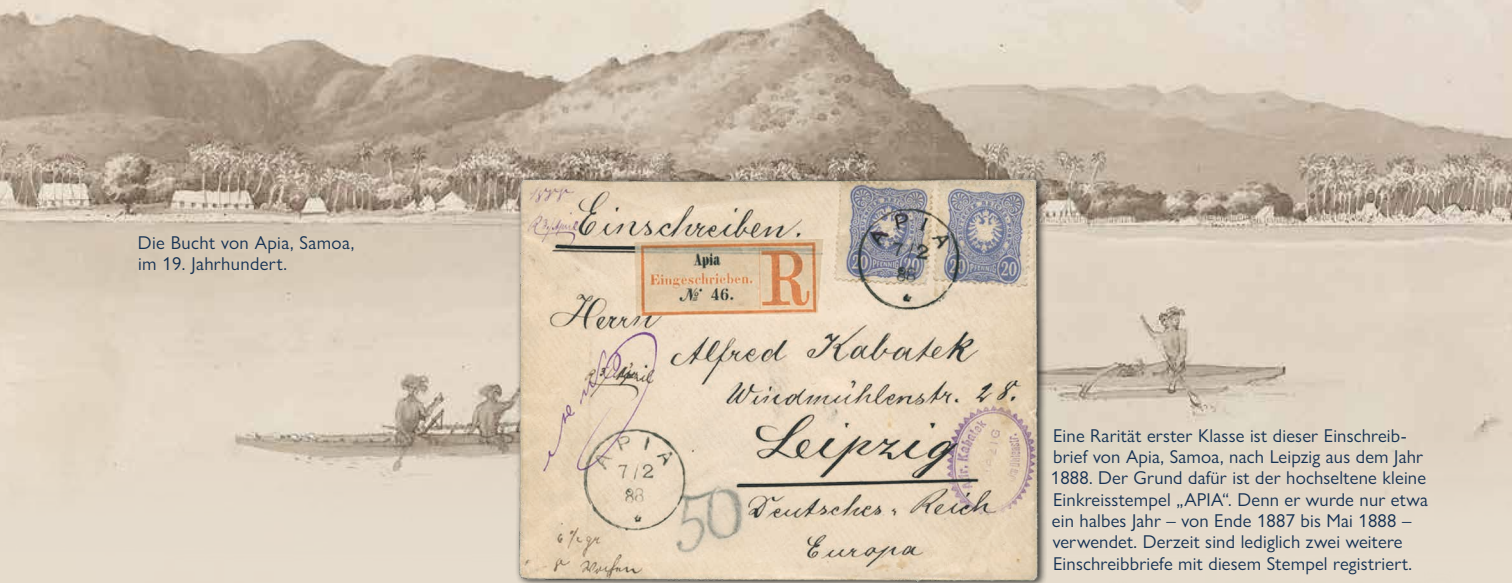 Die Bucht von Apia, Samoa,
im 19. Jahrhundert.
Einschreiben.
Apia
Eingeschrieben.
№ 46.
R
APIA
7/2
88
20 PFENNIG 20
20 PFENNIG 20
Herrn
Alfred Kabatek
Windmühlenstr. 28.
Leipzig
Deutsches Reich
Europa
April
APIA
7/2
88
50
Kabatek
LEIPZIG
Eine Rarität erster Klasse ist dieser Einschreib-
brief von Apia, Samoa, nach Leipzig aus dem Jahr
1888. Der Grund dafür ist der hochseltene kleine
Einkreisstempel „APIA“. Denn er wurde nur etwa
ein halbes Jahr – von Ende 1887 bis Mai 1888 –
verwendet. Derzeit sind lediglich zwei weitere
Einschreibbriefe mit diesem Stempel registriert.